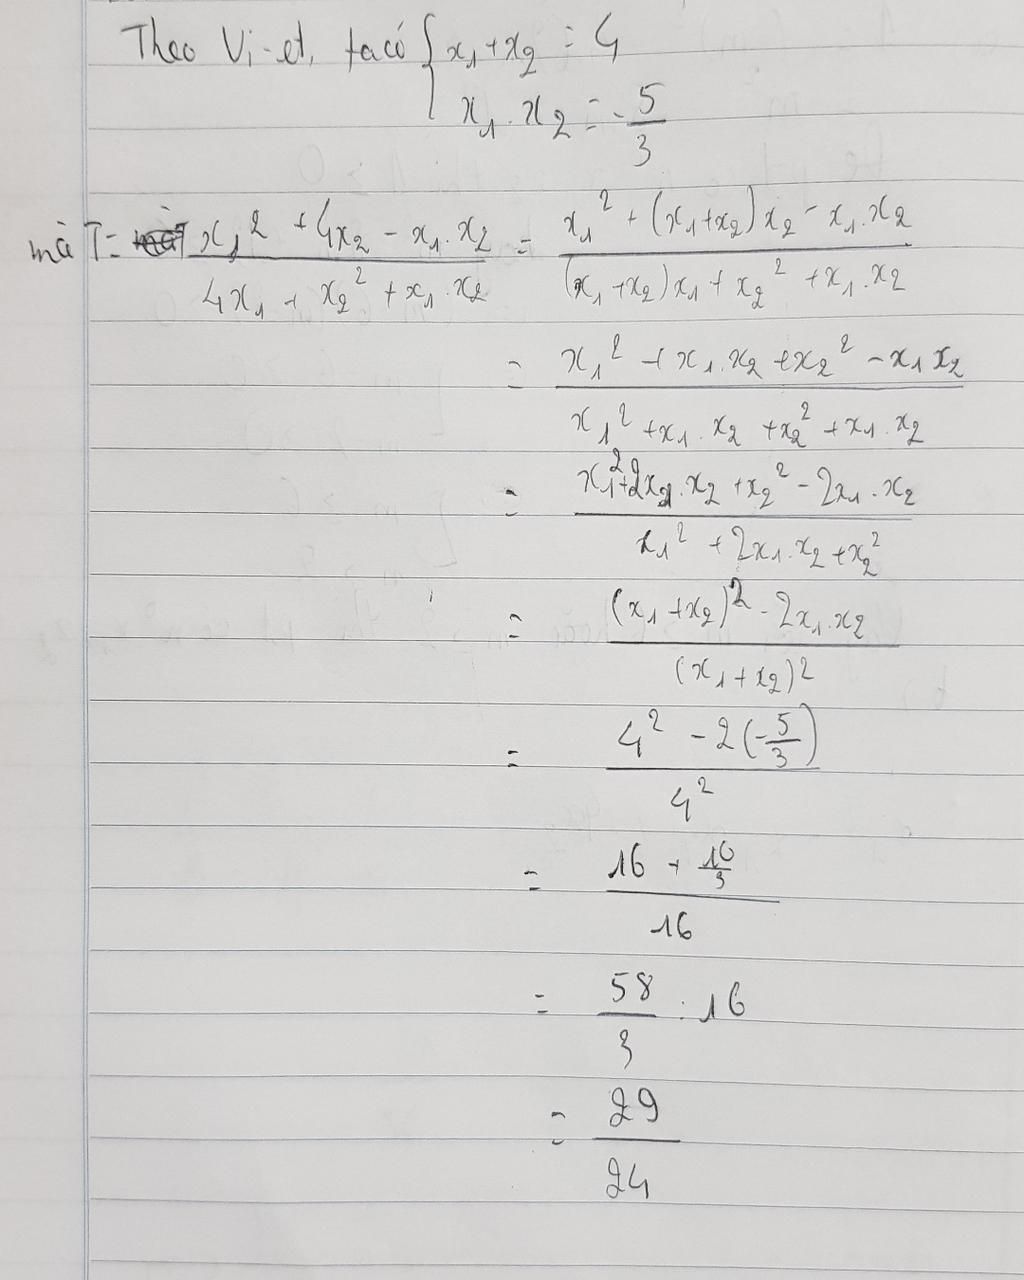 Theo Vi-et, ta có { x₁ + x₂ = 4
x₁ . x₂ = -5/3
mà T = (x₁² + 4x₂ - x₁.x₂)/(4x₁ + x₂² + x₁.x₂) = (x₁² + (x₁+x₂)x₂ - x₁.x₂)/((x₁+x₂)x₁ + x₂² + x₁.x₂)
= (x₁² + x₁.x₂ + x₂² - x₁x₂)/(x₁² + x₁.x₂ + x₂² + x₁.x₂)
= (x₁² + 2x₁.x₂ + x₂² - 2x₁.x₂)/(x₁² + 2x₁.x₂ + x₂²)
= ((x₁+x₂)² - 2x₁.x₂)/(x₁+x₂)²
= (4² - 2(-5/3))/4²
= (16 + 10/3)/16
= 58/3 : 16
= 29/24